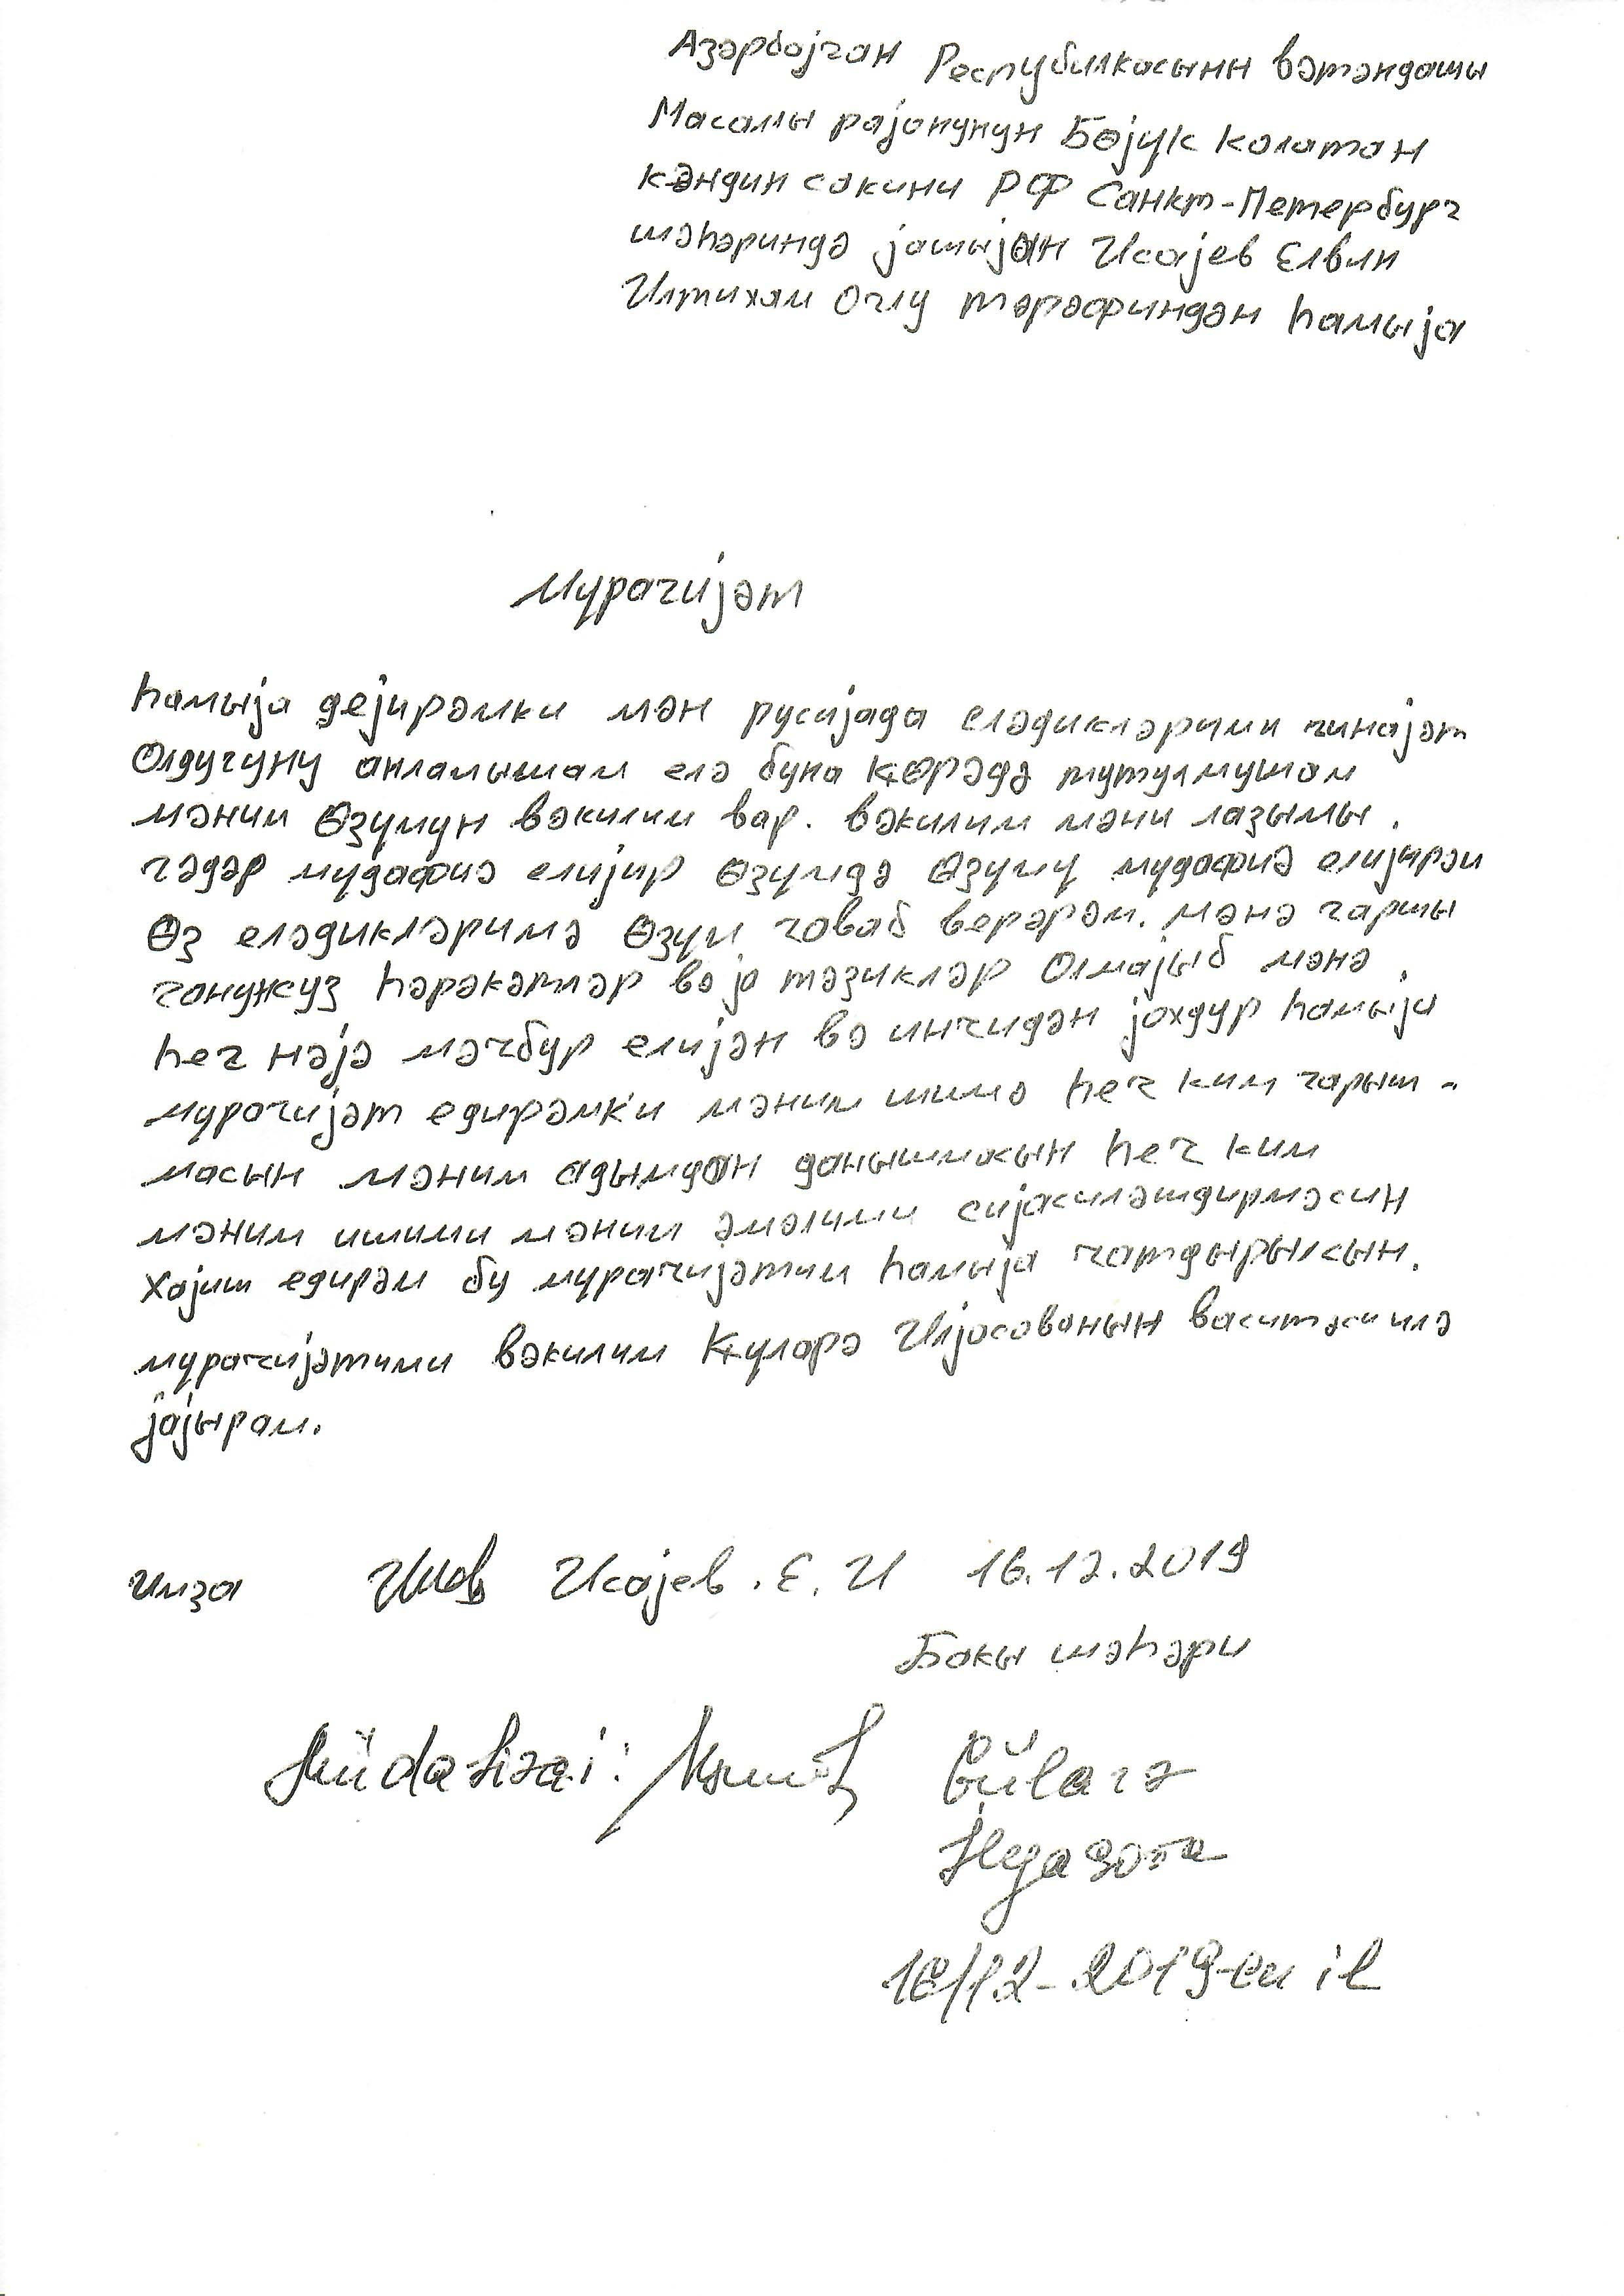 Азәрбајҹан Республикасынн вәтәндашы
Масаллы рајонунун Бөјүк Колатан
кәндин сакини РФ Санкт-Петербург
шәһәриндә јашыјан Исајев Елвин
Илтихам Оглу тәрәфиндән һамыја
мурачијәт
һамыја дејирәмки мән русијада еләдикләрими чинајәт
Олдугуну анламышам елә буна ҝөрәдә тутулмушам
мәним Өзүмүн вәкилим вар. вәкилим мәни лазымы
гәдәр мудафиә елијир өзүмдә өзүмү мудафиә елијирәм
Өз еләдикләримә өзүм чаваб верәрәм. мәнә гаршы
ганунсуз һәрәкәтләр вә ја тәзикләр Олмајыб мәнә
һеч нәјә мәчбур елијән вә инчидән јохдур һамыја
мурачијәт едирәмки мәним ишимә һеч ким гарыш-
масын мәним адымдан данышмасын һеч ким
мәним ишими мәним әмәлими сијасиләшдирмәсин
Хајиш едирәм бу мурачијәтим һамыја чатдырылсын.
мурачијәтими вәкилим Ҝүларә Илјасованын васитәсилә
јајырам.
имза Исајев. Е. И 16.12.2019
Бакы шәһәри
Müdafiəçi: Gülarə
İlyasova
16/12-2019-cu il